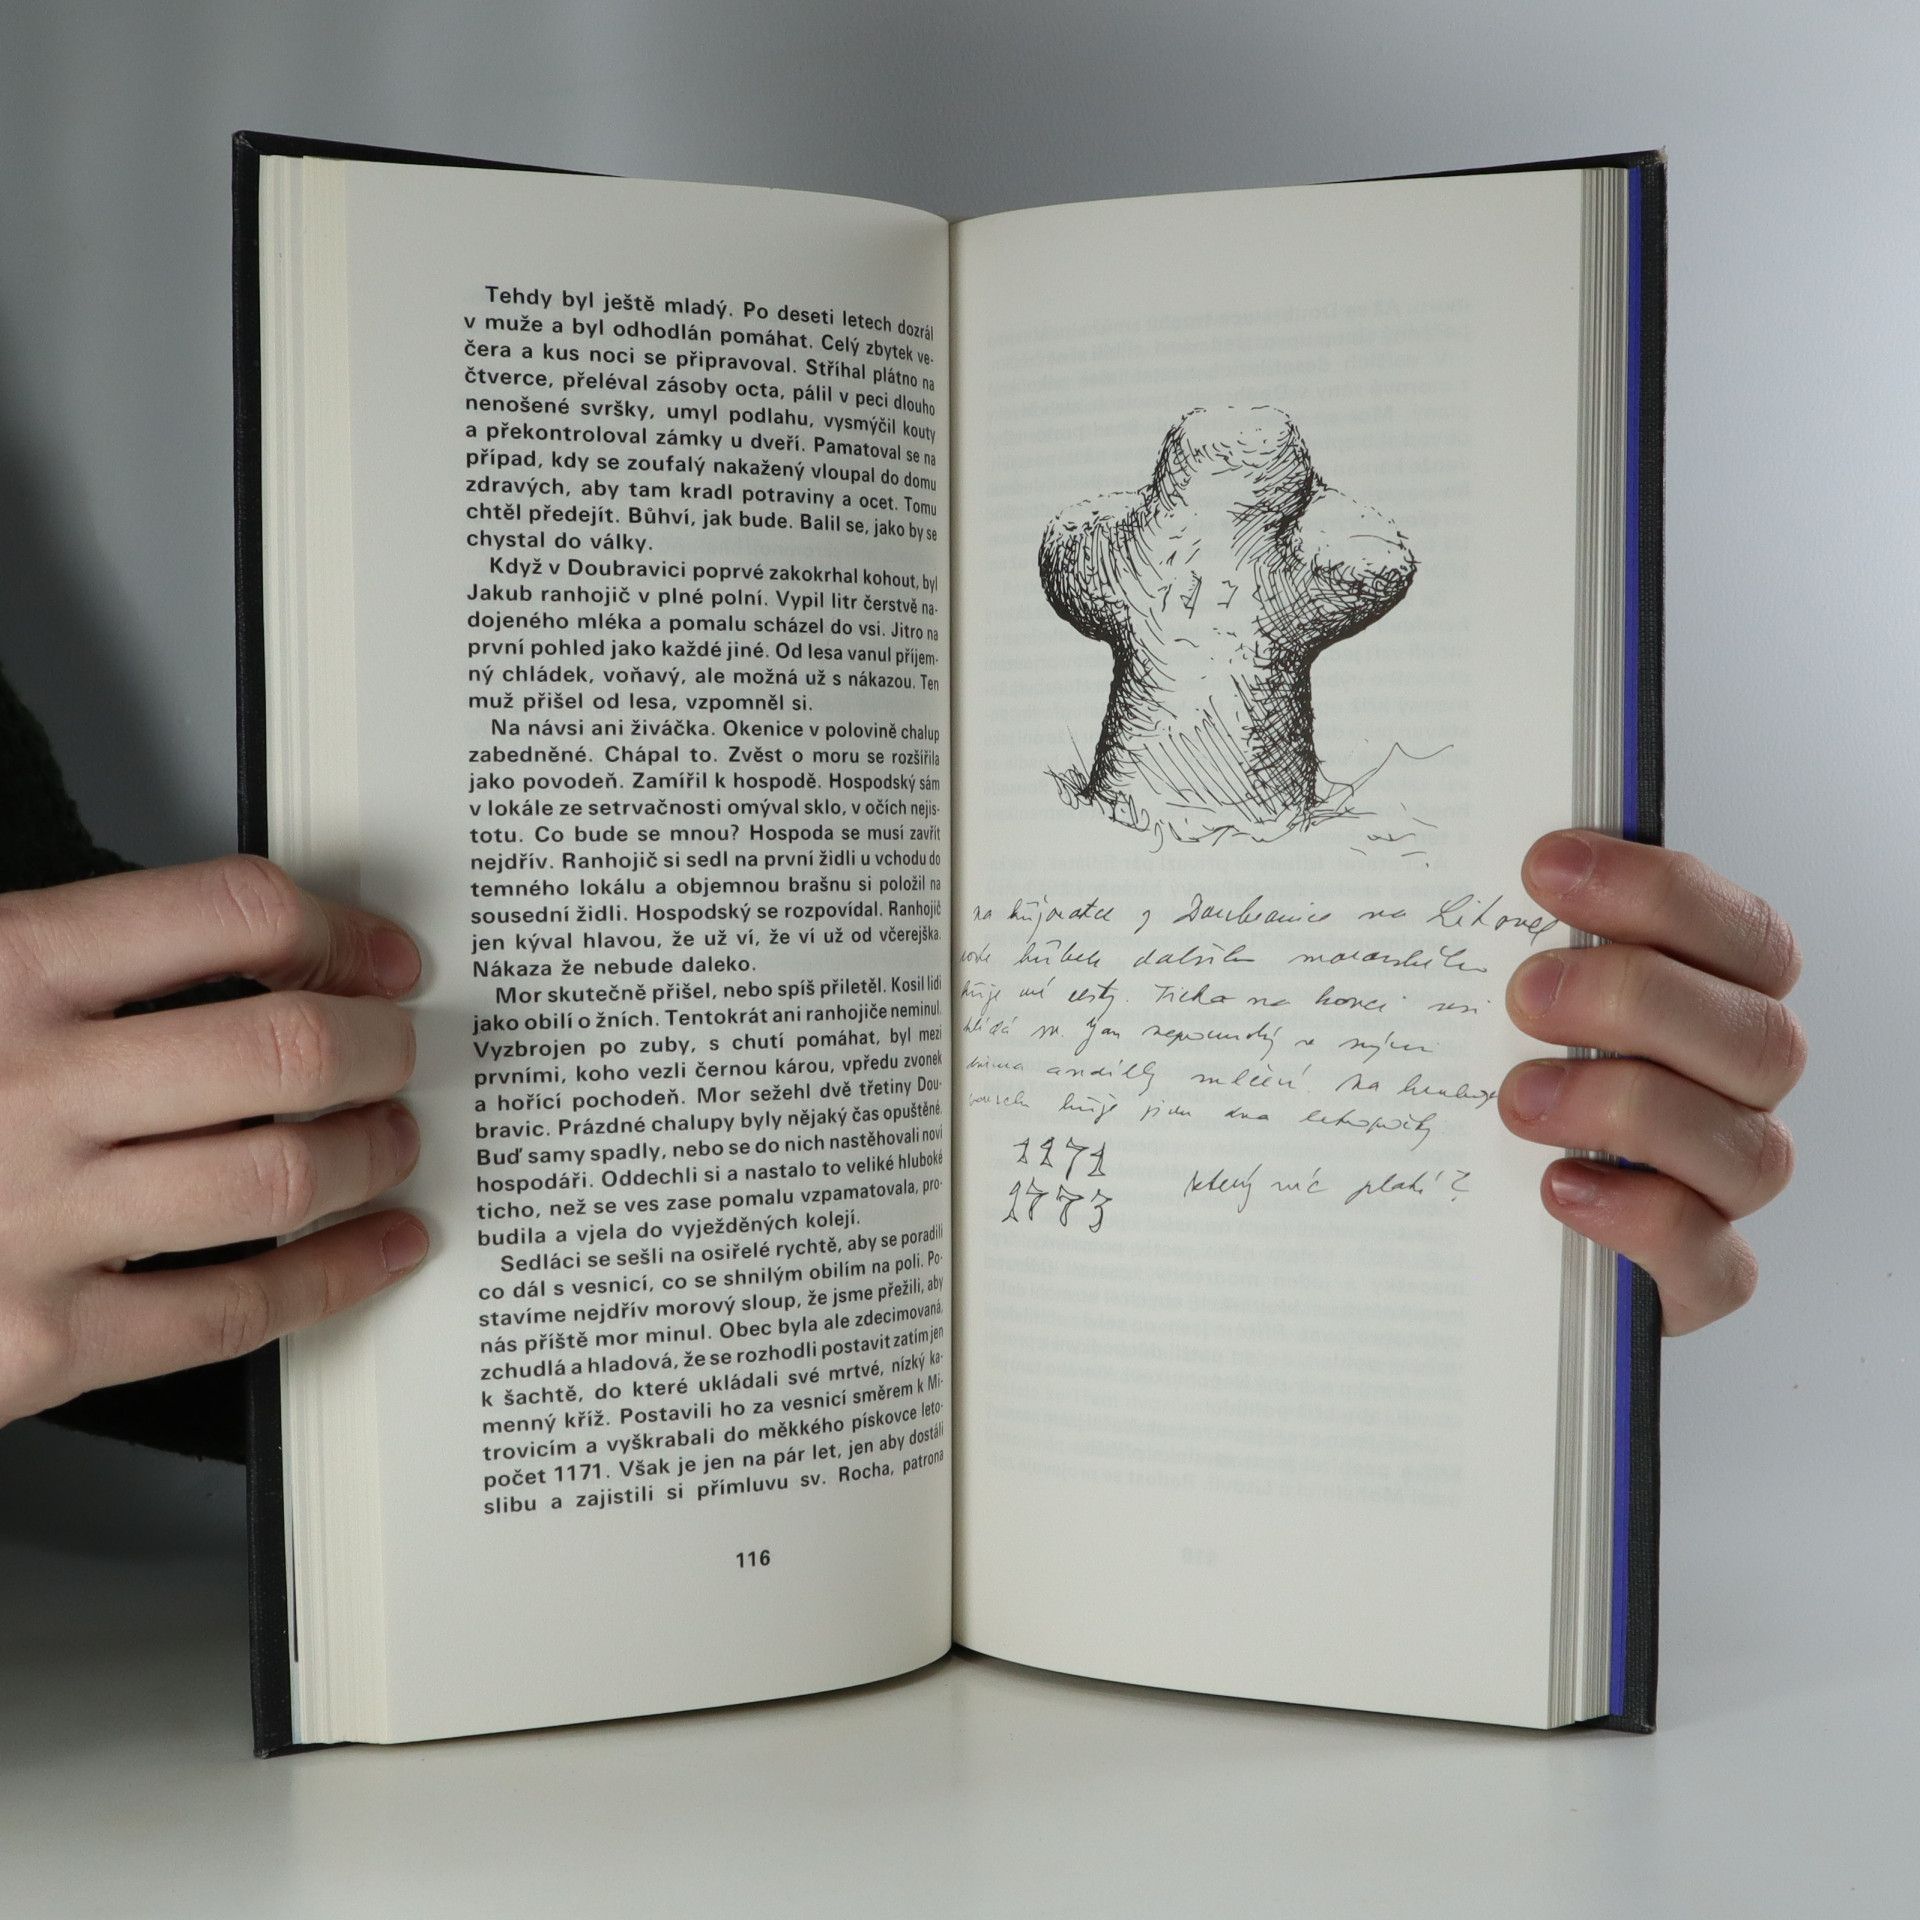 Tehdy byl ještě mladý. Po deseti letech dozrál
v muže a byl odhodlán pomáhat. Celý zbytek ve-
čera a kus noci se připravoval. Stříhal plátno na
čtverce, přeléval zásoby octa, pálil v peci dlouho
nenošené svršky, umyl podlahu, vysmýčil kouty
a překontroloval zámky u dveří. Pamatoval se na
případ, kdy se zoufalý nakažený vloupal do domu
zdravých, aby tam kradl potraviny a ocet. Tomu
chtěl předejít. Bůhví, jak bude. Balil se, jako by se
chystal do války.
Když v Doubravici poprvé zakokrhal kohout, byl
Jakub ranhojič v plné polní. Vypil litr čerstvě na-
dojeného mléka a pomalu scházel do vsi. Jitro na
první pohled jako každé jiné. Od lesa vanul příjem-
ný chládek, voňavý, ale možná už s nákazou. Ten
muž přišel od lesa, vzpomněl si.
Na návsi ani živáčka. Okenice v polovině chalup
zabedněné. Chápal to. Zvěst o moru se rozšířila
jako povodeň. Zamířil k hospodě. Hospodský sám
v lokále ze setrvačnosti omýval sklo, v očích nejis-
totu. Co bude se mnou? Hospoda se musí zavřít
nejdřív. Ranhojič si sedl na první židli u vchodu do
temného lokálu a objemnou brašnu si položil na
sousední židli. Hospodský se rozpovídal. Ranhojič
jen kýval hlavou, že už ví, že ví už od včerejška.
Nákaza že nebude daleko.
Mor skutečně přišel, nebo spíš přiletěl. Kosil lidi
jako obilí o žních. Tentokrát ani ranhojiče neminul.
Vyzbrojen po zuby, s chutí pomáhat, byl mezi
prvními, koho vezli černou károu, vpředu zvonek
a hořící pochodeň. Mor sežehl dvě třetiny Dou-
bravic. Prázdné chalupy byly nějaký čas opuštěné.
Buď samy spadly, nebo se do nich nastěhovali noví
hospodáři. Oddechli si a nastalo to veliké hluboké
ticho, než se ves zase pomalu vzpamatovala, pro-
budila a vjela do vyježděných kolejí.
Sedláci se sešli na osiřelé rychtě, aby se poradili
co dál s vesnicí, co se shnilým obilím na poli. Po-
stavíme nejdřív morový sloup, že jsme přežili, aby
nás příště mor minul. Obec byla ale zdecimovaná,
zchudlá a hladová, že se rozhodli postavit zatím jen
k šachtě, do které ukládali své mrtvé, nízký ka-
menný kříž. Postavili ho za vesnicí směrem k Mi-
trovicím a vyškrabali do měkkého pískovce leto-
počet 1171. Však je jen na pár let, jen aby dostáli
slibu a zajistili si přímluvu sv. Rocha, patrona
116
na křižovatce z Doubravice na Litovel
hřbek dalšího moravského
kříže mé cesty. Ticho na konci vsi
hlídá sv. Jan nepomucký se svými
andílky mlčení na
kříže jsou dva letopočty
1171
1773 který víc platí?